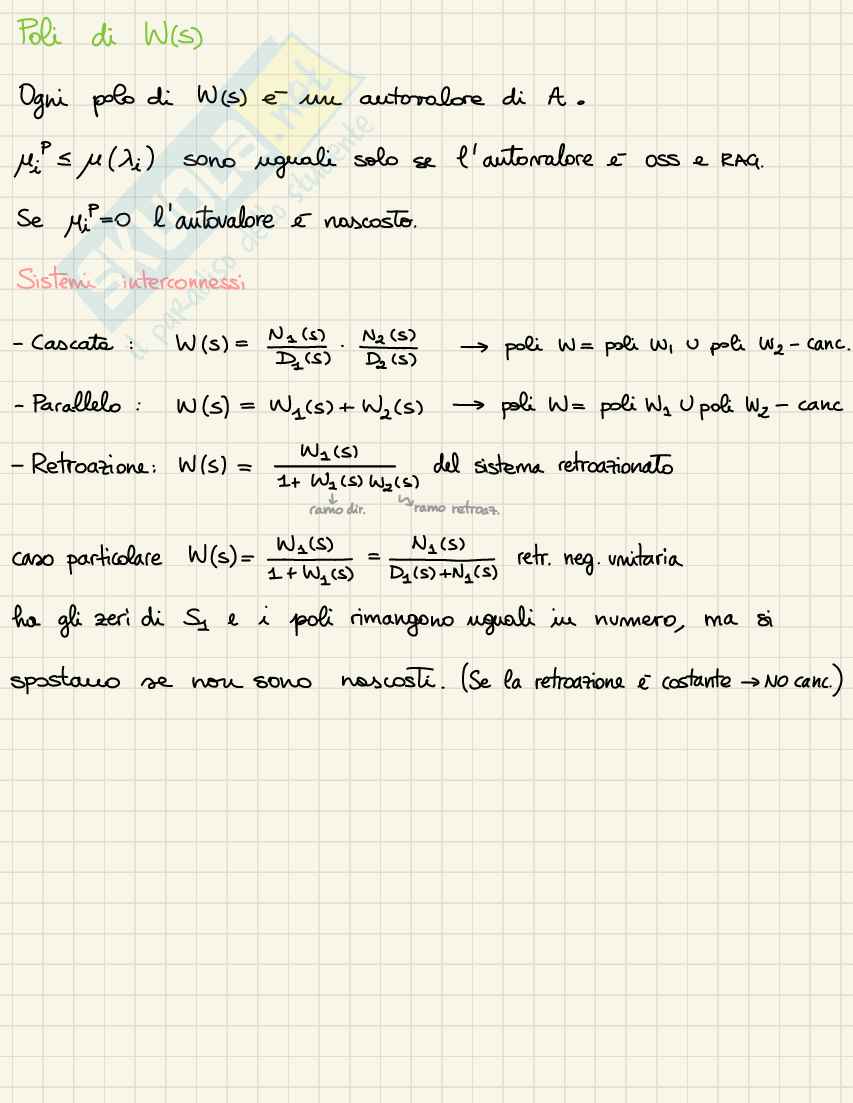 Poli di W(s)
Ogni polo di W(s) è un autovalore di A.
μᵢᴾ ≤ μ(λᵢ) sono uguali solo se l'autovalore è oss e RAG.
Se μᵢᴾ=0 l'autovalore è nascosto.
Sistemi interconnessi
- Cascata : W(s) = N₁(s)/D₁(s) · N₂(s)/D₂(s) → poli W = poli W₁ ∪ poli W₂ - canc.
- Parallelo : W(s) = W₁(s) + W₂(s) → poli W = poli W₁ ∪ poli W₂ - canc
- Retroazione: W(s) = W₁(s)/(1+ W₁(s) W₂(s)) del sistema retroazionato
↓ ramo dir. ↘ ramo retroaz.
caso particolare W(s) = W₁(s)/(1 + W₁(s)) = N₁(s)/(D₁(s)+N₁(s)) retr. neg. unitaria
ha gli zeri di S₁ e i poli rimangono uguali in numero, ma si
spostano se non sono nascosti. (Se la retroazione è costante → NO canc.)
SKUOLA.net
il paradiso dello studente